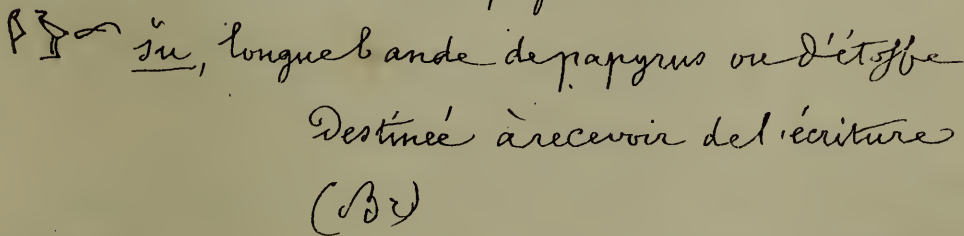 šu, longue bande de papyrus ou d'étoffe
Destinéé à recevoir de l'écriture